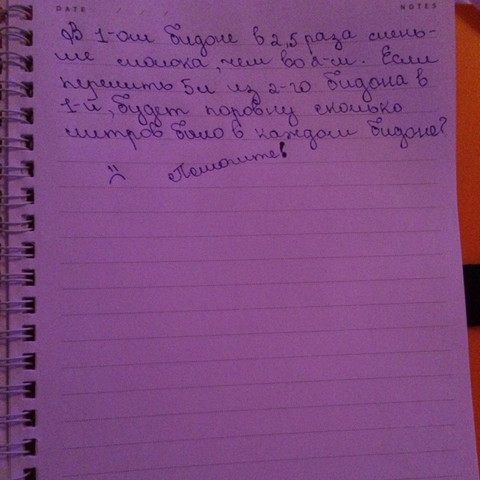 DATE NOTES
В 1-ом бидоне в 2,5 раза мень-
ше молока, чем во 2-м. Если
перелить 5л из 2-го бидона в
1-й, будет поровну сколько
литров было в каждом бидоне?
Помогите!